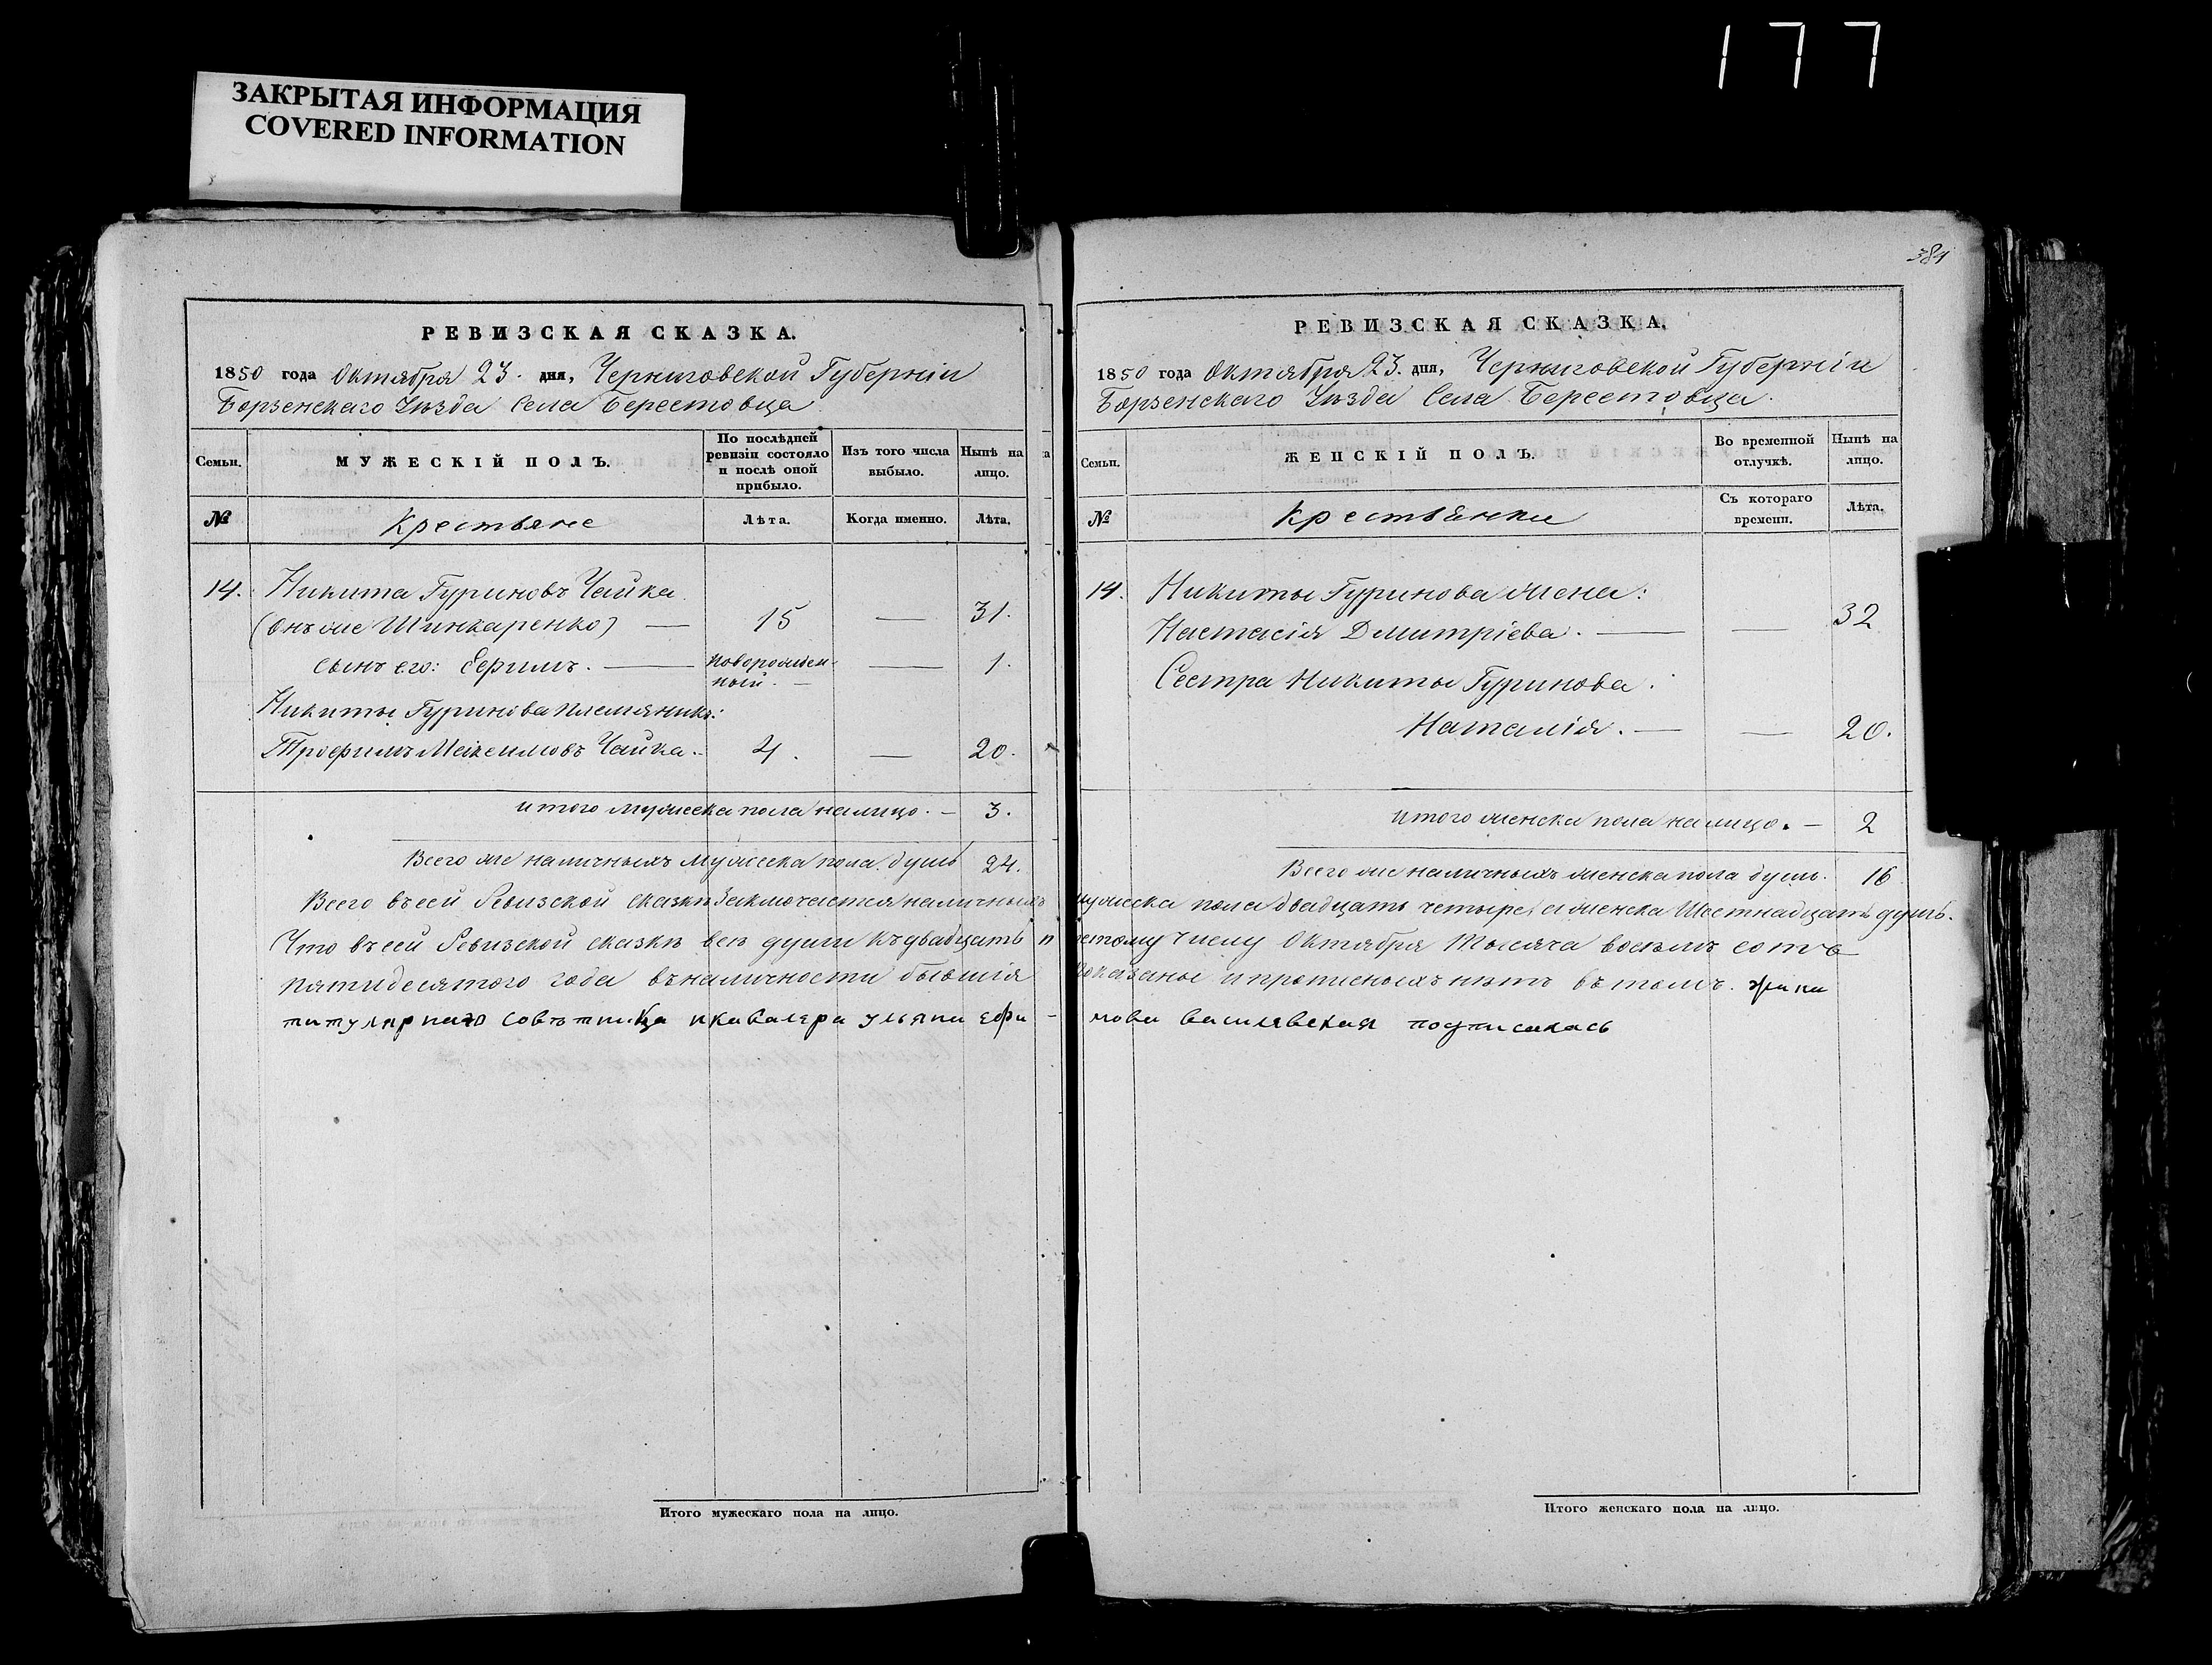 177
ЗАКРЫТАЯ ИНФОРМАЦИЯ
COVERED INFORMATION
РЕВИЗСКАЯ СКАЗКА.
1850 года Октября 23. дня, Черниговской Губерніи
Борзенскаго Уѣзда Села Берестовца
Семьи.
МУЖЕСКІЙ ПОЛЪ.
По послѣдней ревизіи состояло и послѣ оной прибыло.
Изъ того числа выбыло.
Нынѣ на лицо.
№
Крестьяне
Лѣта.
Когда именно.
Лѣта.
14. Никита Гуриновъ Чайка
(онъ же Шинкаренко) — 15 — 31.
сынъ его: Ефимъ. — новорожден- — 1.
ный. —
Никиты Гуринова племяникъ:
Трофимъ Максимовъ Чайка. — 4. — 20.
итого мужеска пола налицо. — 3.
Всего же наличныхъ мужеска пола душъ 24.
Всего въ сей Ревизской сказкѣ Заключается наличныхъ
Что въ сей Ревизской сказкѣ всѣ души къ двадцать п
пятидесятого года въ наличности бывшія
титулярнаго совѣтника и кавалера ульяна ефи-
Итого мужескаго пола на лицо.
384
РЕВИЗСКАЯ СКАЗКА.
1850 года Октября 23. дня, Черниговской Губерніи
Борзенскаго Уѣзда Села Берестовца.
Семьи.
ЖЕНСКІЙ ПОЛЪ.
Во временной отлучкѣ.
Нынѣ на лицо.
№
Крестьянки
Съ котораго времени.
Лѣта.
14. Никиты Гуринова жена:
Настасія Дмитріева. — — 32
Сестра Никиты Гуринова:
Наталія. — — 20.
итого женска пола налицо. — 2
Всего же наличныхъ женска пола душъ. 16
мужеска пола двадцать четыре, а женска Шестнадцать душъ.
ятому числу Октября тысяча восемь сотъ
показаны и прописныхъ нѣтъ въ томъ. жена
мова василевская подписалась
Итого женскаго пола на лицо.